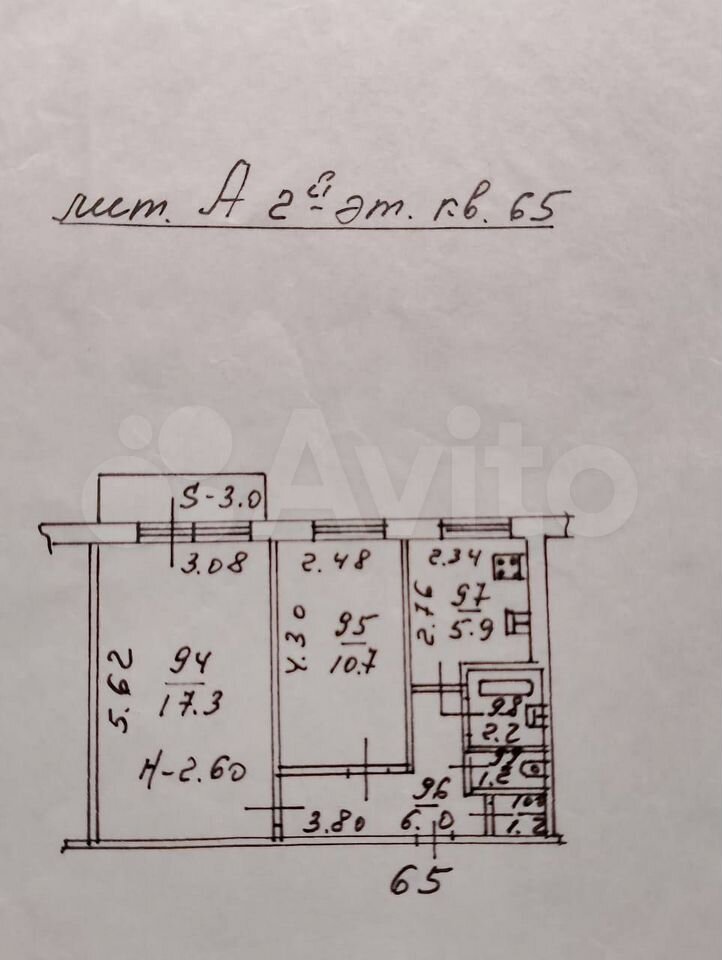 лит. А 2й эт. кв. 65
Avito
S-3.0
3.08
2.48
2.34
5.62
94
17.3
H-2.60
4.30
95
10.7
2.76
97
5.9
98
2.2
99
1.2
100
1.2
96
6.0
3.80
65